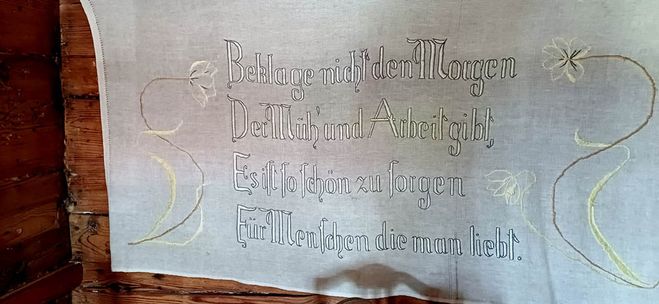 Beklage nicht den Morgen
Der Müh' und Arbeit gibt,
Es ist so schön zu sorgen
Für Menschen die man liebt.